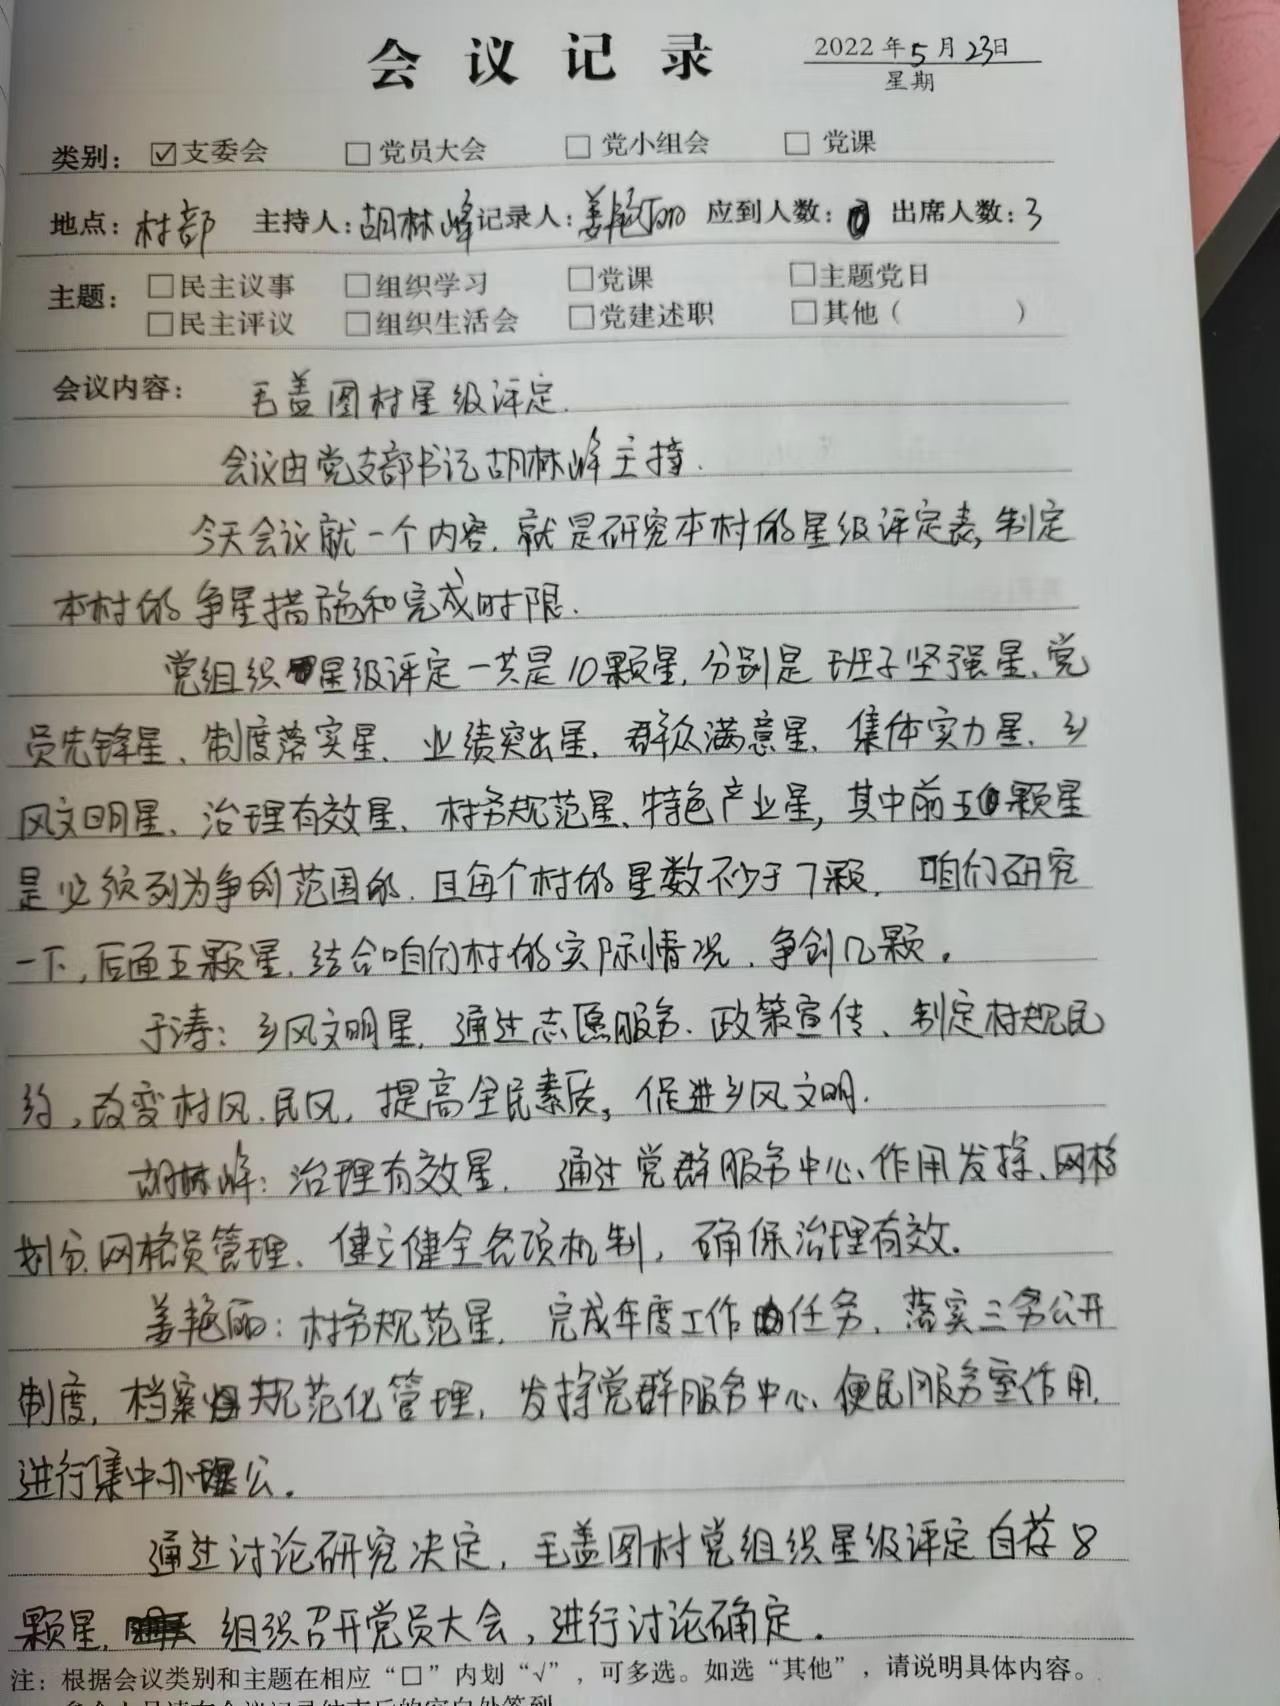 会议记录
2022年5月23日
星期
类别：☑支委会 □党员大会 □党小组会 □党课
地点：村部 主持人：胡林峰 记录人：姜艳丽 应到人数： 出席人数：3
主题：□民主议事 □组织学习 □党课 □主题党日
□民主评议 □组织生活会 □党建述职 □其他（ ）
会议内容： 毛盖图村星级评定.
会议由党支部书记胡林峰主持.
今天会议就一个内容.就是研究本村的星级评定表,制定
本村的争星措施和完成时限.
党组织星级评定一共是10颗星,分别是班子坚强星、党
员先锋星、制度落实星、业绩突出星、群众满意星、集体实力星、乡
风文明星、治理有效星、村务规范星、特色产业星,其中前五颗星
是必须列为争创范围的.且每个村的星数不少于7颗. 咱们研究
一下,后面五颗星,结合咱们村的实际情况,争创几颗。
于涛：乡风文明星,通过志愿服务、政策宣传、制定村规民
约,改变村风、民风,提高全民素质,促进乡风文明.
胡林峰：治理有效星, 通过党群服务中心作用发挥、网格
划分、网格员管理、健立健全各项机制,确保治理有效.
姜艳丽：村务规范星,完成年度工作任务,落实三务公开
制度,档案规范化管理,发挥党群服务中心、便民服务室作用,
进行集中办公。
通过讨论研究决定,毛盖图村党组织星级评定自荐8
颗星, 组织召开党员大会,进行讨论确定。
注：根据会议类别和主题在相应“□”内划“√”，可多选。如选“其他”，请说明具体内容。